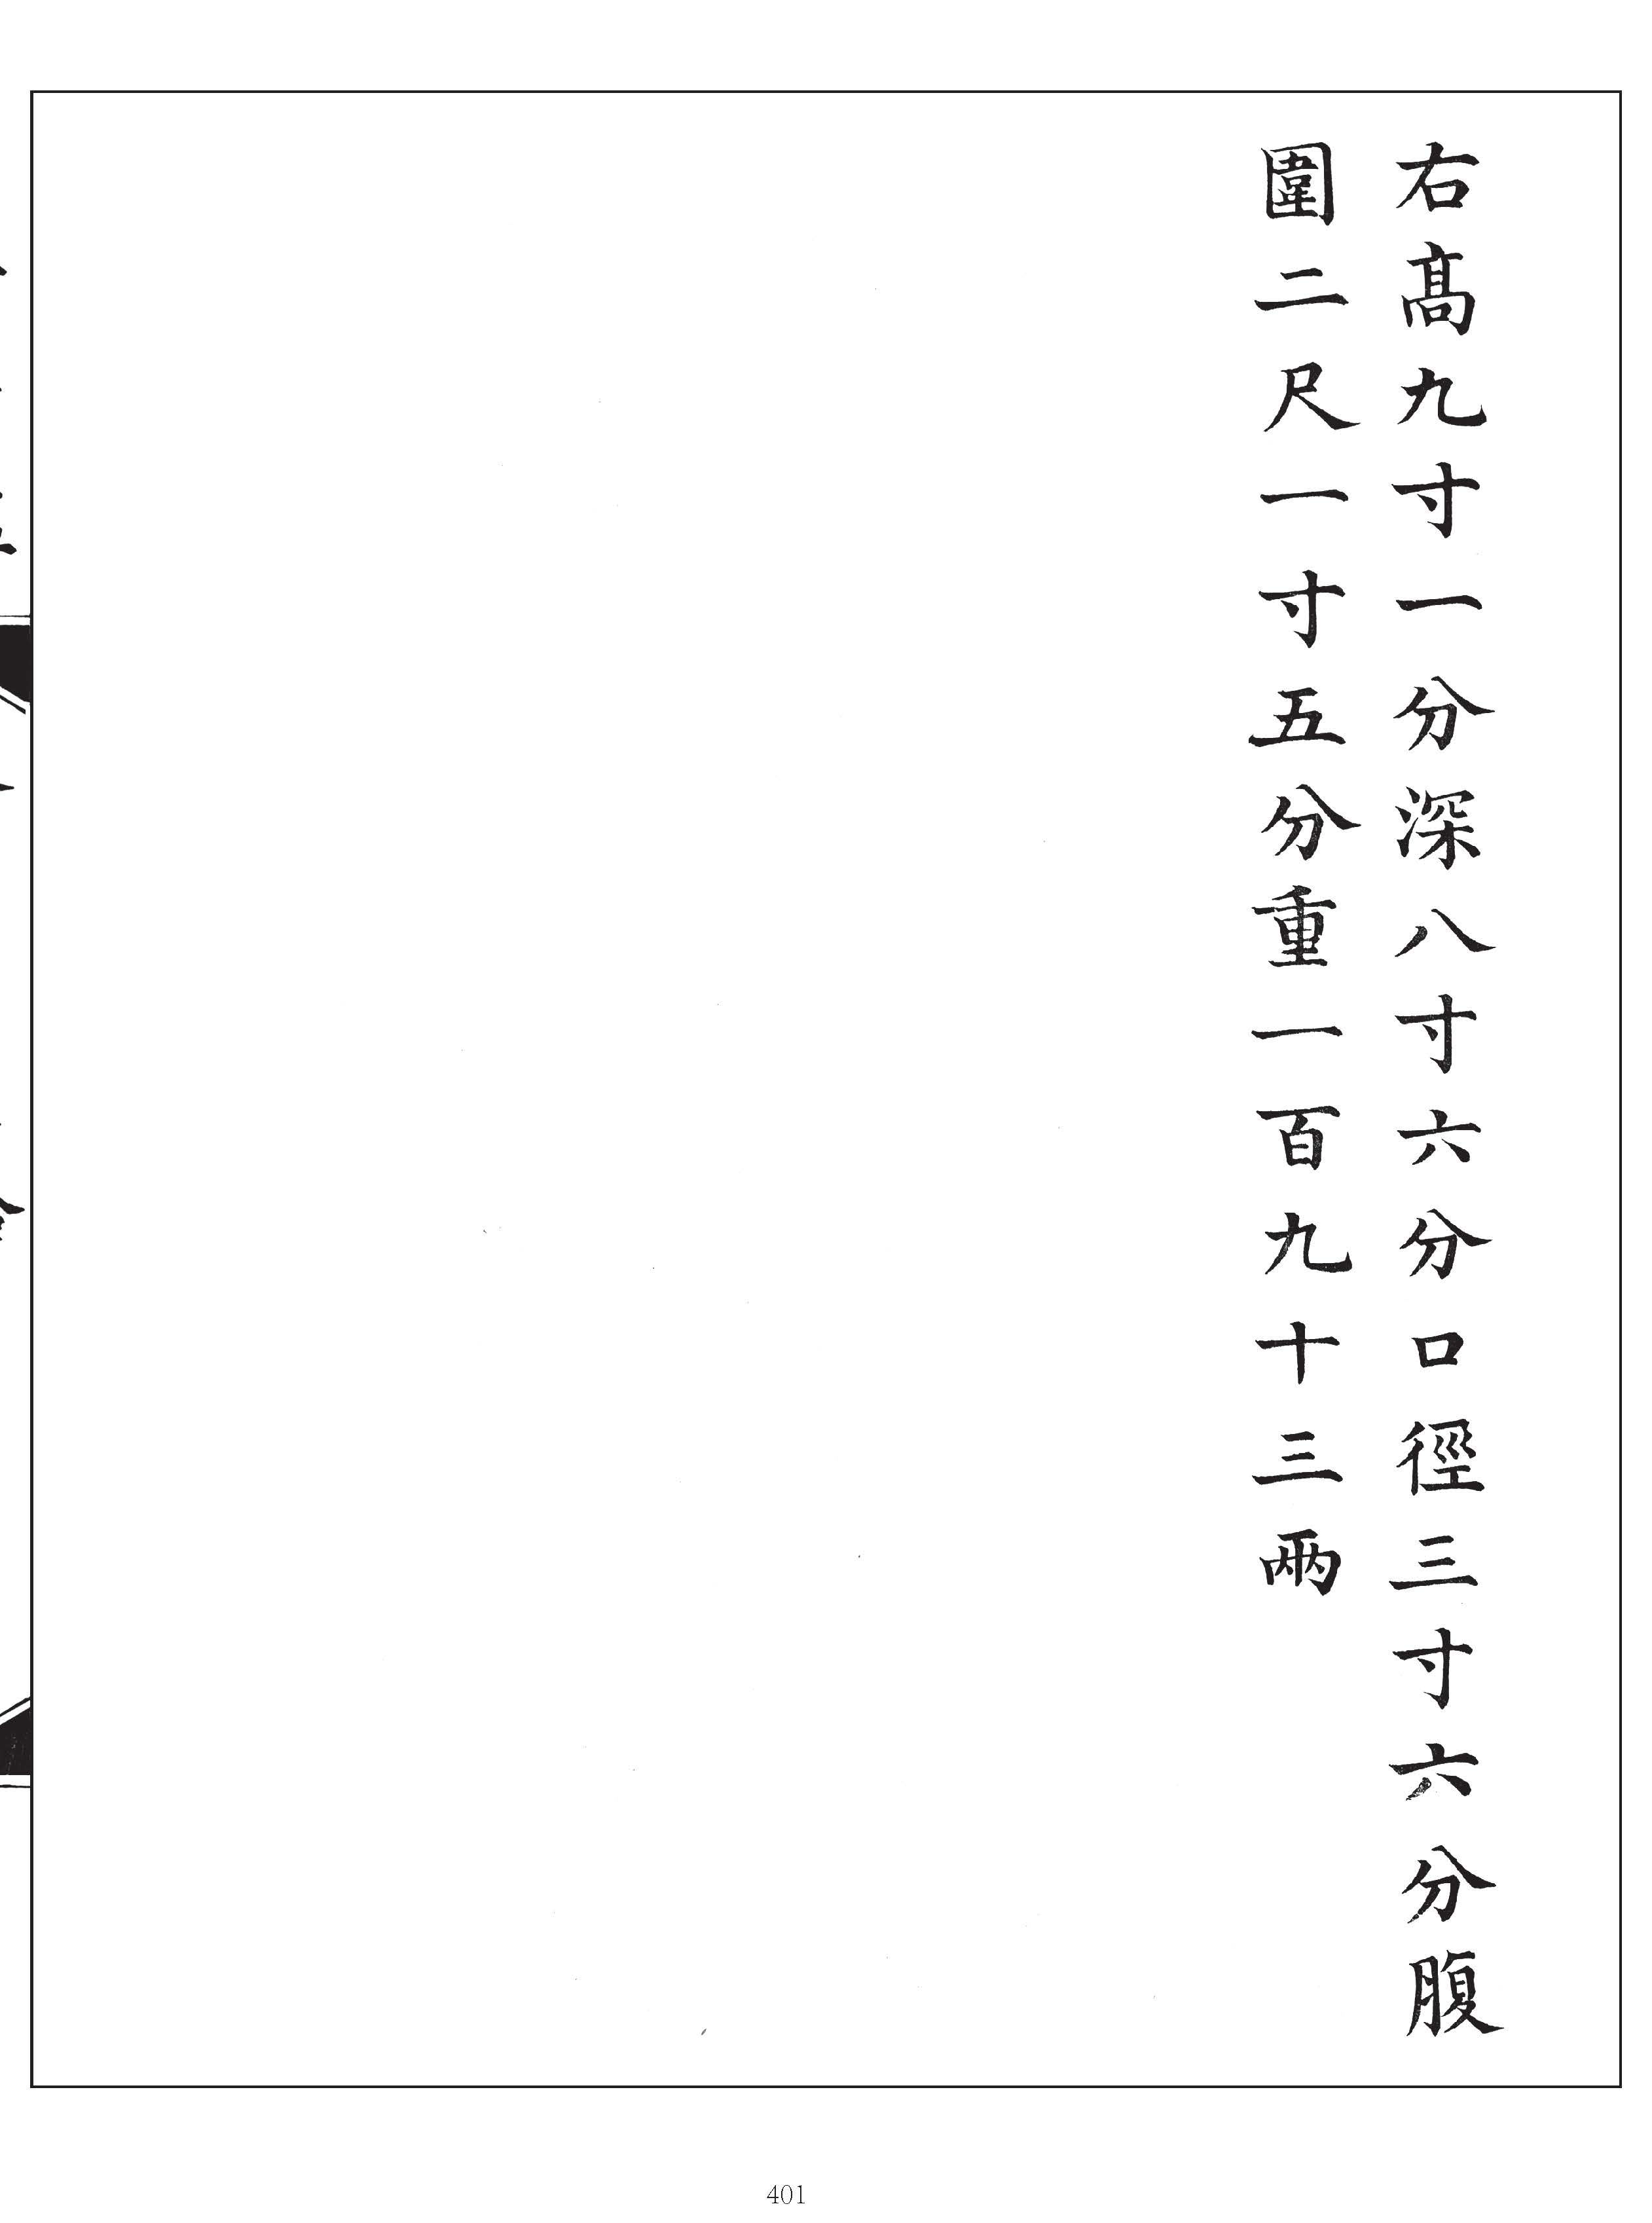 右髙九寸一分深八寸六分口徑三寸六分腹
圍二尺一寸五分重一百九十三兩
401